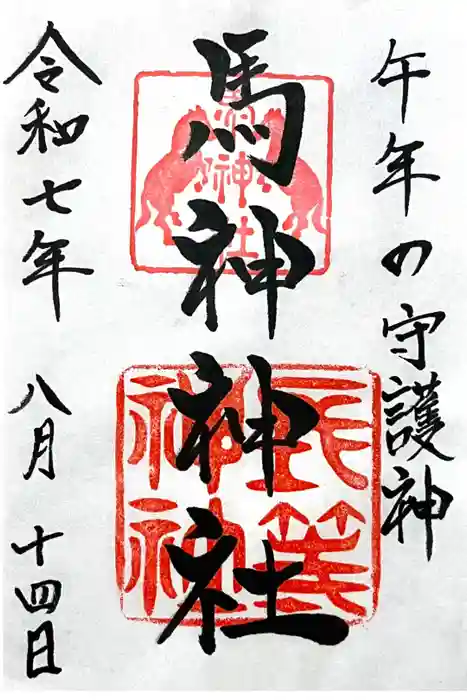 午年の守護神
馬神神社
令和七年 八月 十四日